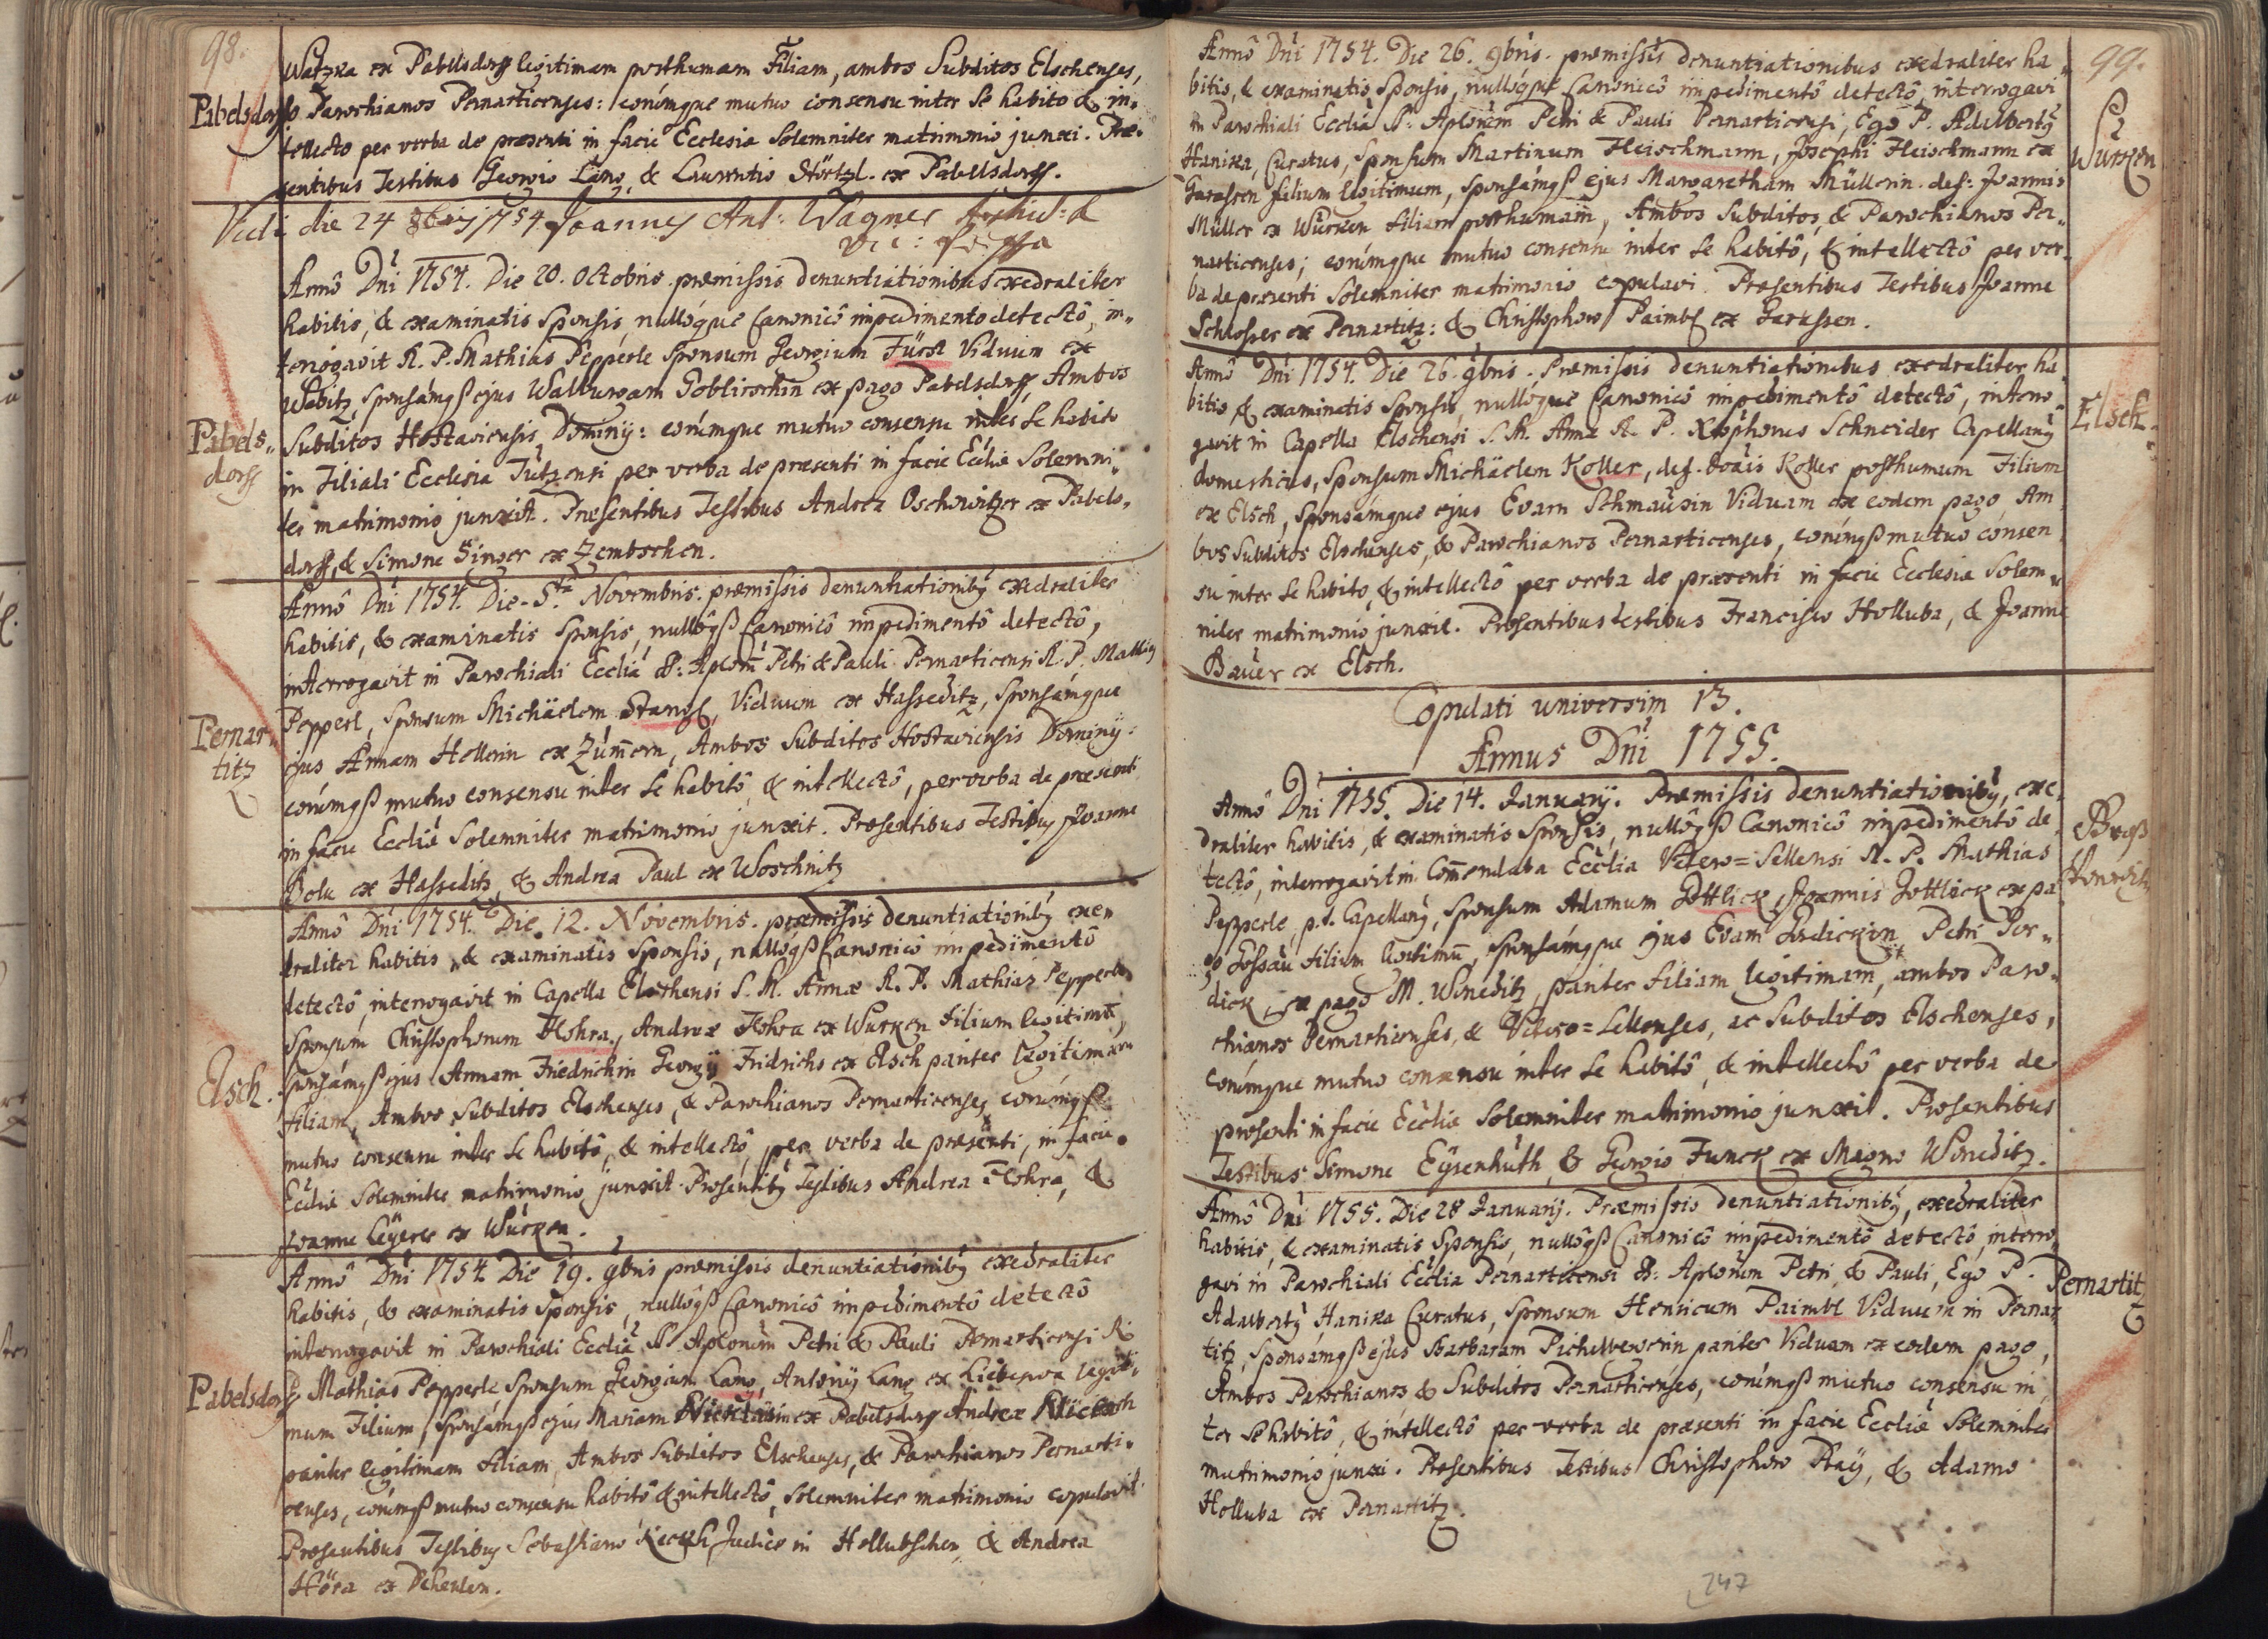 98.
Watzka ex Pabelsdorff legitimam posthumam Filiam, ambos Subditos Elschenses,
Pabelsdorff
& Parochianos Pernarticenses: eorúmque mutuo consensu inter se habito & in-
tellecto per verba de præsenti in facie Ecclesiæ Solemniter matrimonio junxi. Præ-
sentibus Testibus Georgio Lang, & Laurentio Störtzl. ex Pabelsdorff.
Vidi die 24 8bris 1754 Joannes Ant: Wagner
Annô Dni 1754. Die 20. Octobris præmissis denuntiationibus exedraliter
habitis, & examinatis Sponsis, nullóque Canonicô impedimento detectô, in-
terrogavit R. P. Mathias Pepperle Sponsum Georgium Fürst Viduum ex
Wabitz, sponsámqß ejus Walburgam Goblirschin ex pago Pabelsdorff, Ambos
Pabels-
dorff
Subditos Hostaviensis Dominy: eorúmque mutuo consensu inter se habito
in Filiali Ecclesia Tutzensi per verba de præsenti in facie Eccliæ Solemni-
ter matrimonio junxit. Præsentibus Testibus Andrea Oschwitzer ex Pabels-
dorff, & Simone Singer ex Zembschen.
Annô Dni 1754. Die 5ta Novembris præmissis denuntiationibỹ exedraliter
habitis, & examinatis Sponsis, nullôqß Canonicô impedimentô detectô,
interrogavit in Parochiali Eccliâ SS: Aplorum Petri & Pauli Pernarticensi R. P. Mathias
Pernar-
titz
Pepperl, Sponsum Michäelem Stangl, Viduum ex Hasseditz, Sponsámque
ejus Annam Hellerin ex Zum̃ern, Ambos Subditos Hostaviensis Dominy:
eorúmqß mutuo consensu inter se habitô, & intellectô, per verba de præsenti
in facie Eccliæ Solemniter matrimonio junxit. Præsentibus Testibus Joanne
Bolu ex Hasseditz, & Andrea Paul ex Woschnitz
Annô Dni 1754. Die 12. Novembris. præmissis denuntiationibỹ exe-
draliter habitis, & examinatis Sponsis, nullóqß Canonicô impedimentô
detectô, interrogavit in Capella Elschensi S. M. Annæ R. P. Mathias Pepperle
Sponsum Christophorum Hohra, Andreæ Hohra ex Wurken filium legitimũ,
Elsch.
sponsámqß ejus Annam Friedrichin Georgÿ Fridrichs ex Elsch pariter legitimam
filiam, Ambos Subditos Elschenses, & Parochianos Pernarticenses, eorúmqß
mutuo consensu inter se habitô, & intellectô, per verba de præsenti, in facie
Eccliæ Solemniter matrimonio junxit. Præsentibỹ Testibus Andrea Hohra, &
Joanne Leyerer ex Wurken.
Annô Dni 1754. Die 19. 9bris præmissis denuntiationibỹ exedraliter
habitis, & examinatis Sponsis, nullôqß Canonicô impedimentô detectô
interrogavit in Parochiali Eccliâ SS. Aplorum Petri & Pauli Pernarticensi R.
Pabelsdorff
P. Mathias Pepperle Sponsum Georgium Lang, Antonÿ Lang ex legiti-
mum Filium, sponsámqß ejus Mariam ex Pabelsdorff Andreæ
pariter legitimam filiam, Ambos Subditos Elschenses, & Parochianos Pernarti-
censes, eorúmqß mutuo consensu habitô & intellectô, Solemniter matrimonio copulavit.
Præsentibus Testibus Sebastiano Judice in Hollubschen, & Andrea
Höra ex
99.
Annô Dni 1754. Die 26. 9bris. præmissis denuntiationibus exedraliter ha-
bitis, & examinatis Sponsis, nullóque Canonicô impedimentô detectô, interrogavi
in Parochiali Eccliâ SS: Aplorum Petri & Pauli Pernarticensi, Ego P. Adalbertỹ
Hanika, Curatus, Sponsum Martinum Fleischmann, Josephi Fleischmann ex
Wurken
Garassen filium legitimum, sponsámqß ejus Margaretham Müllerin. def: Joannis
Müller ex Wurken filiam posthumam, Ambos Subditos, & Parochianos Per-
narticenses; eorúmque mutuo consensu inter se habitô, & intellectô per ver-
ba de præsenti Solemniter matrimonio copulavi. Præsentibus Testibus Joanne
Schlosser ex Pernartitz: & Christophoro Paimbl ex Garassen.
Annô Dni 1754. Die 26. 9bris. Præmissis denuntiationibus exedraliter ha-
bitis, & examinatis Sponsis, nullóque Canonicô impedimentô detectô, interro-
Elsch.
gavit in Capella Elschensi S. M. Annæ R. P. Xtophorus Schneider Capellanỹ
domesticus, Sponsum Michäelem Koller, def. Joãis Koller posthumum Filium
ex Elsch, Sponsámque ejus Evam Schmausin Viduam ex eodem pago, Am-
bos Subditos Elschenses, & Parochianos Pernarticenses, eorúmqß mutuo consen-
su inter se habito, & intellectô per verba de præsenti in facie Ecclesiæ Solem-
niter matrimonio junxit. Præsentibus testibus Francisco Holluba, & Joanne
Bauer ex Elsch.
Copulati universim 13.
Annus Dni 1755.
Annô Dni 1755. Die 14. Januarÿ. Præmissis denuntiationibỹ, exe-
draliter habitis, & examinatis Sponsis, nullôqß Canonicô impedimentô de-
Groß
Wonetitz
tectô, interrogavit in Com̃endata Ecclia Vetero=Sellensi R. P. Mathias
Pepperle, p. t. Capellanỹ, Sponsum Adamum Gottlick, Joannis Gottlick ex pa-
go Gossau filium legitimũ, sponsámque ejus Evam Gordickin, Petri Gor-
dick, ex pago M. Woneditz, pariter filiam legitimam, ambos Paro-
chianos Pernarticenses, & Vetero=Sellenses, ac Subditos Elschenses,
eorúmque mutuo consensu inter se habitô, & intellectô per verba de
præsenti in facie Eccliæ Solemniter matrimonio junxit. Præsentibus
Testibus Simone Eysenhuth, & Georgio Funck ex Magno Woneditz.
Annô Dni 1755. Die 28 Januarÿ. Præmissis denuntiationibỹ, exedraliter
habitis, & examinatis Sponsis, nullôqß Canonicô impedimentô detectô, interro-
gavi in Parochiali Eccliâ Pernarticensi SS: Aplorum Petri & Pauli, Ego P.
Pernartitz
Adalbertỹ Hanika Curatus, Sponsum Henricum Paimbl Viduum in Pernar-
titz, Sponsámqß ejus Barbaram pariter Viduam ex eodem pago,
Ambos Parochianos & Subditos Pernarticenses, eorúmqß mutuo consensu in-
ter se habitô, & intellectô per verba de præsenti in facie Eccliæ Solemniter
matrimonio junxi. Præsentibus Testibus Christophoro Bäy, & Adamo
Holluba ex Pernartitz.
247